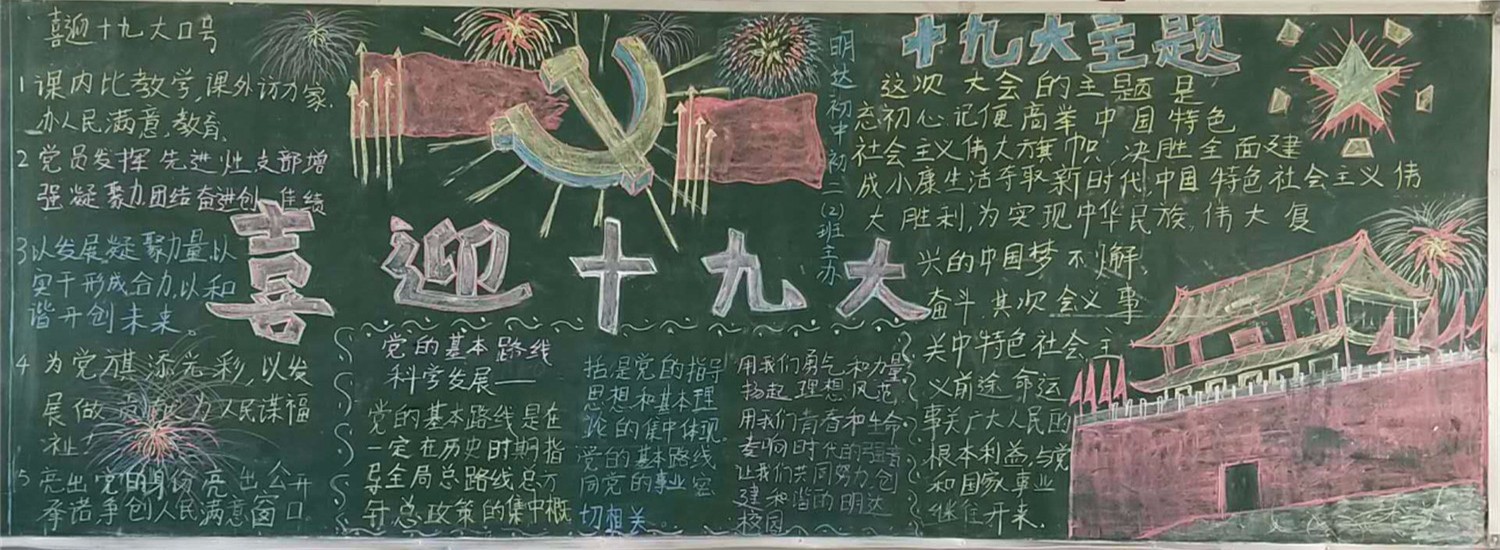 喜迎十九大口号
1课内比教学,课外访万家.
办人民满意,教育.
2党员发挥先进性支部增
强凝聚力团结奋进创佳绩
3以发展凝聚力量,以
实干形成合力,以和
谐开创未来。
4为党旗添光彩,以发
展做 为人民谋福
祉!
5亮出党的身份亮出公开
承诺争创人民满意窗口
喜迎十九大
党的基本路线
科学发展——
党的基本路线是在
一定在历史时期指
导全局总路线总方
针总政策的集中概
括,是党的指导
思想和基本理
论的集中体现.
党的基本路线
同党的事业密
切相关.
用我们勇气和力量
扬起理想风范,
用我们青春和生命
奏响时代的强音
让我们共同努力,创
建和谐的明达
校园
明达初中初二(2)班主办
十九大主题
这次大会的主题是
忘初心记便高举中国特色
社会主义伟大旗帜,决胜全面建
成小康生活夺取新时代中国特色社会主义伟
大胜利,为实现中华民族,伟大复
兴的中国梦不懈,
奋斗其次会义事
关中特色社会主
义前途命运
事关广大人民的
根本利益,与党
和国家事业
继往开来.